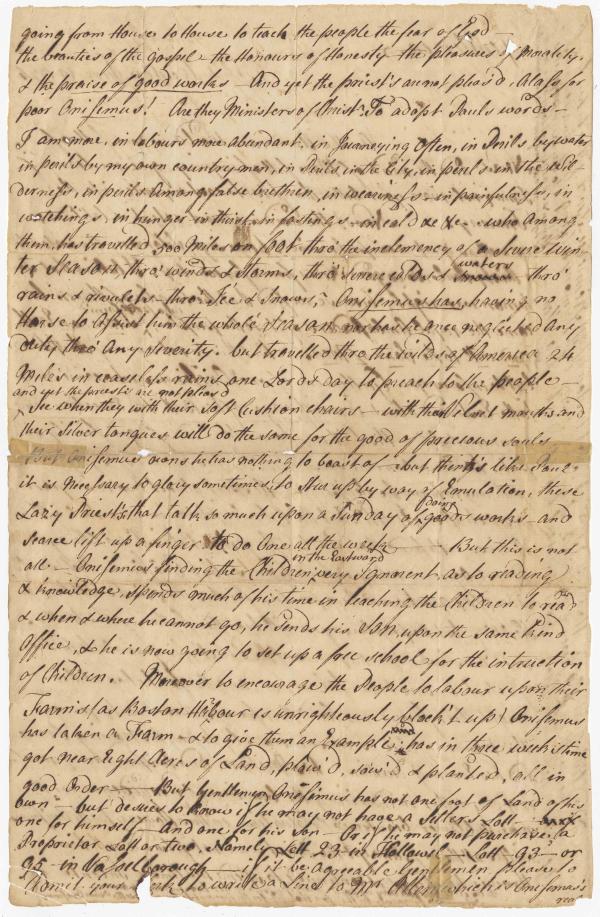 going from House to House to teach the people the fear of God –
the beauties of the gospel – the Honours of Honesty – the pleasures of Morality,
& the praise of good works – And yet the priest's are not pleas'd, Alass for
poor Onisimus! Are they Ministers of Christ? To adopt Pauls words –
I am more, in labours more abundant, in Journeying Often, in Perils by water
in perils by my own countrymen, in Perils, in the City, in perils in the wil-
derness, in perils Among false brethren, in weariness – in painfulness, in
watchings, in hunger in thirst, in fastings – in cold &c &c – who Among
them, has travelled 500 Miles on foot thro the inclemency of a Severe Win-
ter Season thro' winds & Storms, thro' severe colds & waters thro'
rains & rivulets – thro' Ice & Snows, Onisimus has, having no
Horse to Assist him the whole Season nor has he once neglected Any
duty thro' Any Severity. but travelled thro the wilds of America 24
Miles in ceasless rains, one Lords day to preach to the people –
and yet the priest's are not pleas'd
See when they with their Soft Cushion chairs – with their velvet mouths and
their Silver tongues will do the same for the good of precious souls
But Onisimus owns he has nothing to boast of – but thinks like Paul
it is necessary to glory sometimes, to Stur up by way of Emulation, these
Lazy Priest's, that talk so much upon a Sunday of doing good works – and
scarce lift up a finger to do One all the week – But this is not
all – Onisimus finding the Children in the Eastward very ignorant as to reading
& knowledge, spends much of his time in teaching the Children to read
& when & where he cannot go, he sends his Son, upon the same kind
Office, & he is now going to set up a free school for the intruction
of Children. Moreover to encourage the People to labour upon their
Farms (as Boston Harbour is unrighteously block't up) Onisimus
has taken a Farm – & to give them an Example, and has in three weeks time
got near Eight Acres of Land, plow'd, sow'd & planted, all in
good Order – But Gentlemen Onisimus has not one foot of Land of his
own – but desires to know if he may not have a Setlers Lott –
one for himself – And one for his Son – Or if he may not purchase a
Proprietor Lott or two, Namely Lott 23 in Hallowel – Lott 93 – or
95 – in Vasselborough – if it be agreeable Gentlemen please to
Admit your Clerk to write a Line to Mr Allen which is Onisimus's
real